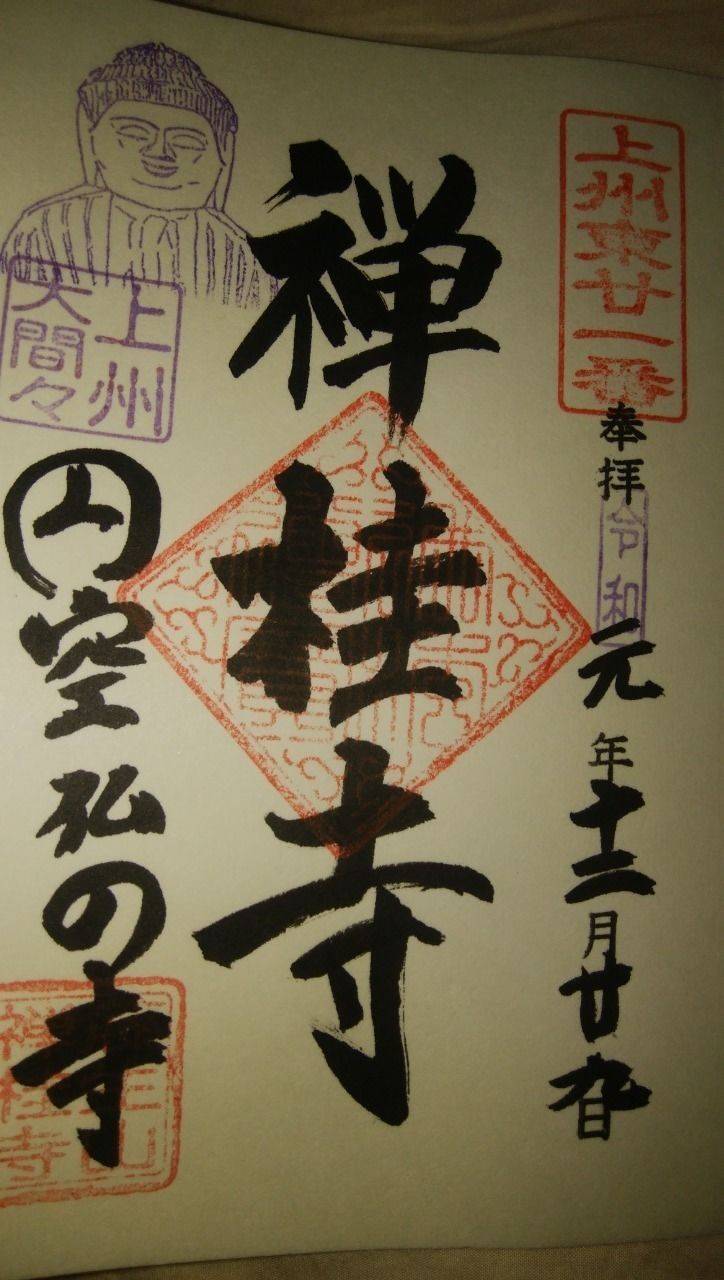 上州東廿一番
奉拝 令和元年十二月廿九日
禅桂寺
上州
大間々
円空弘の寺
禅桂寺